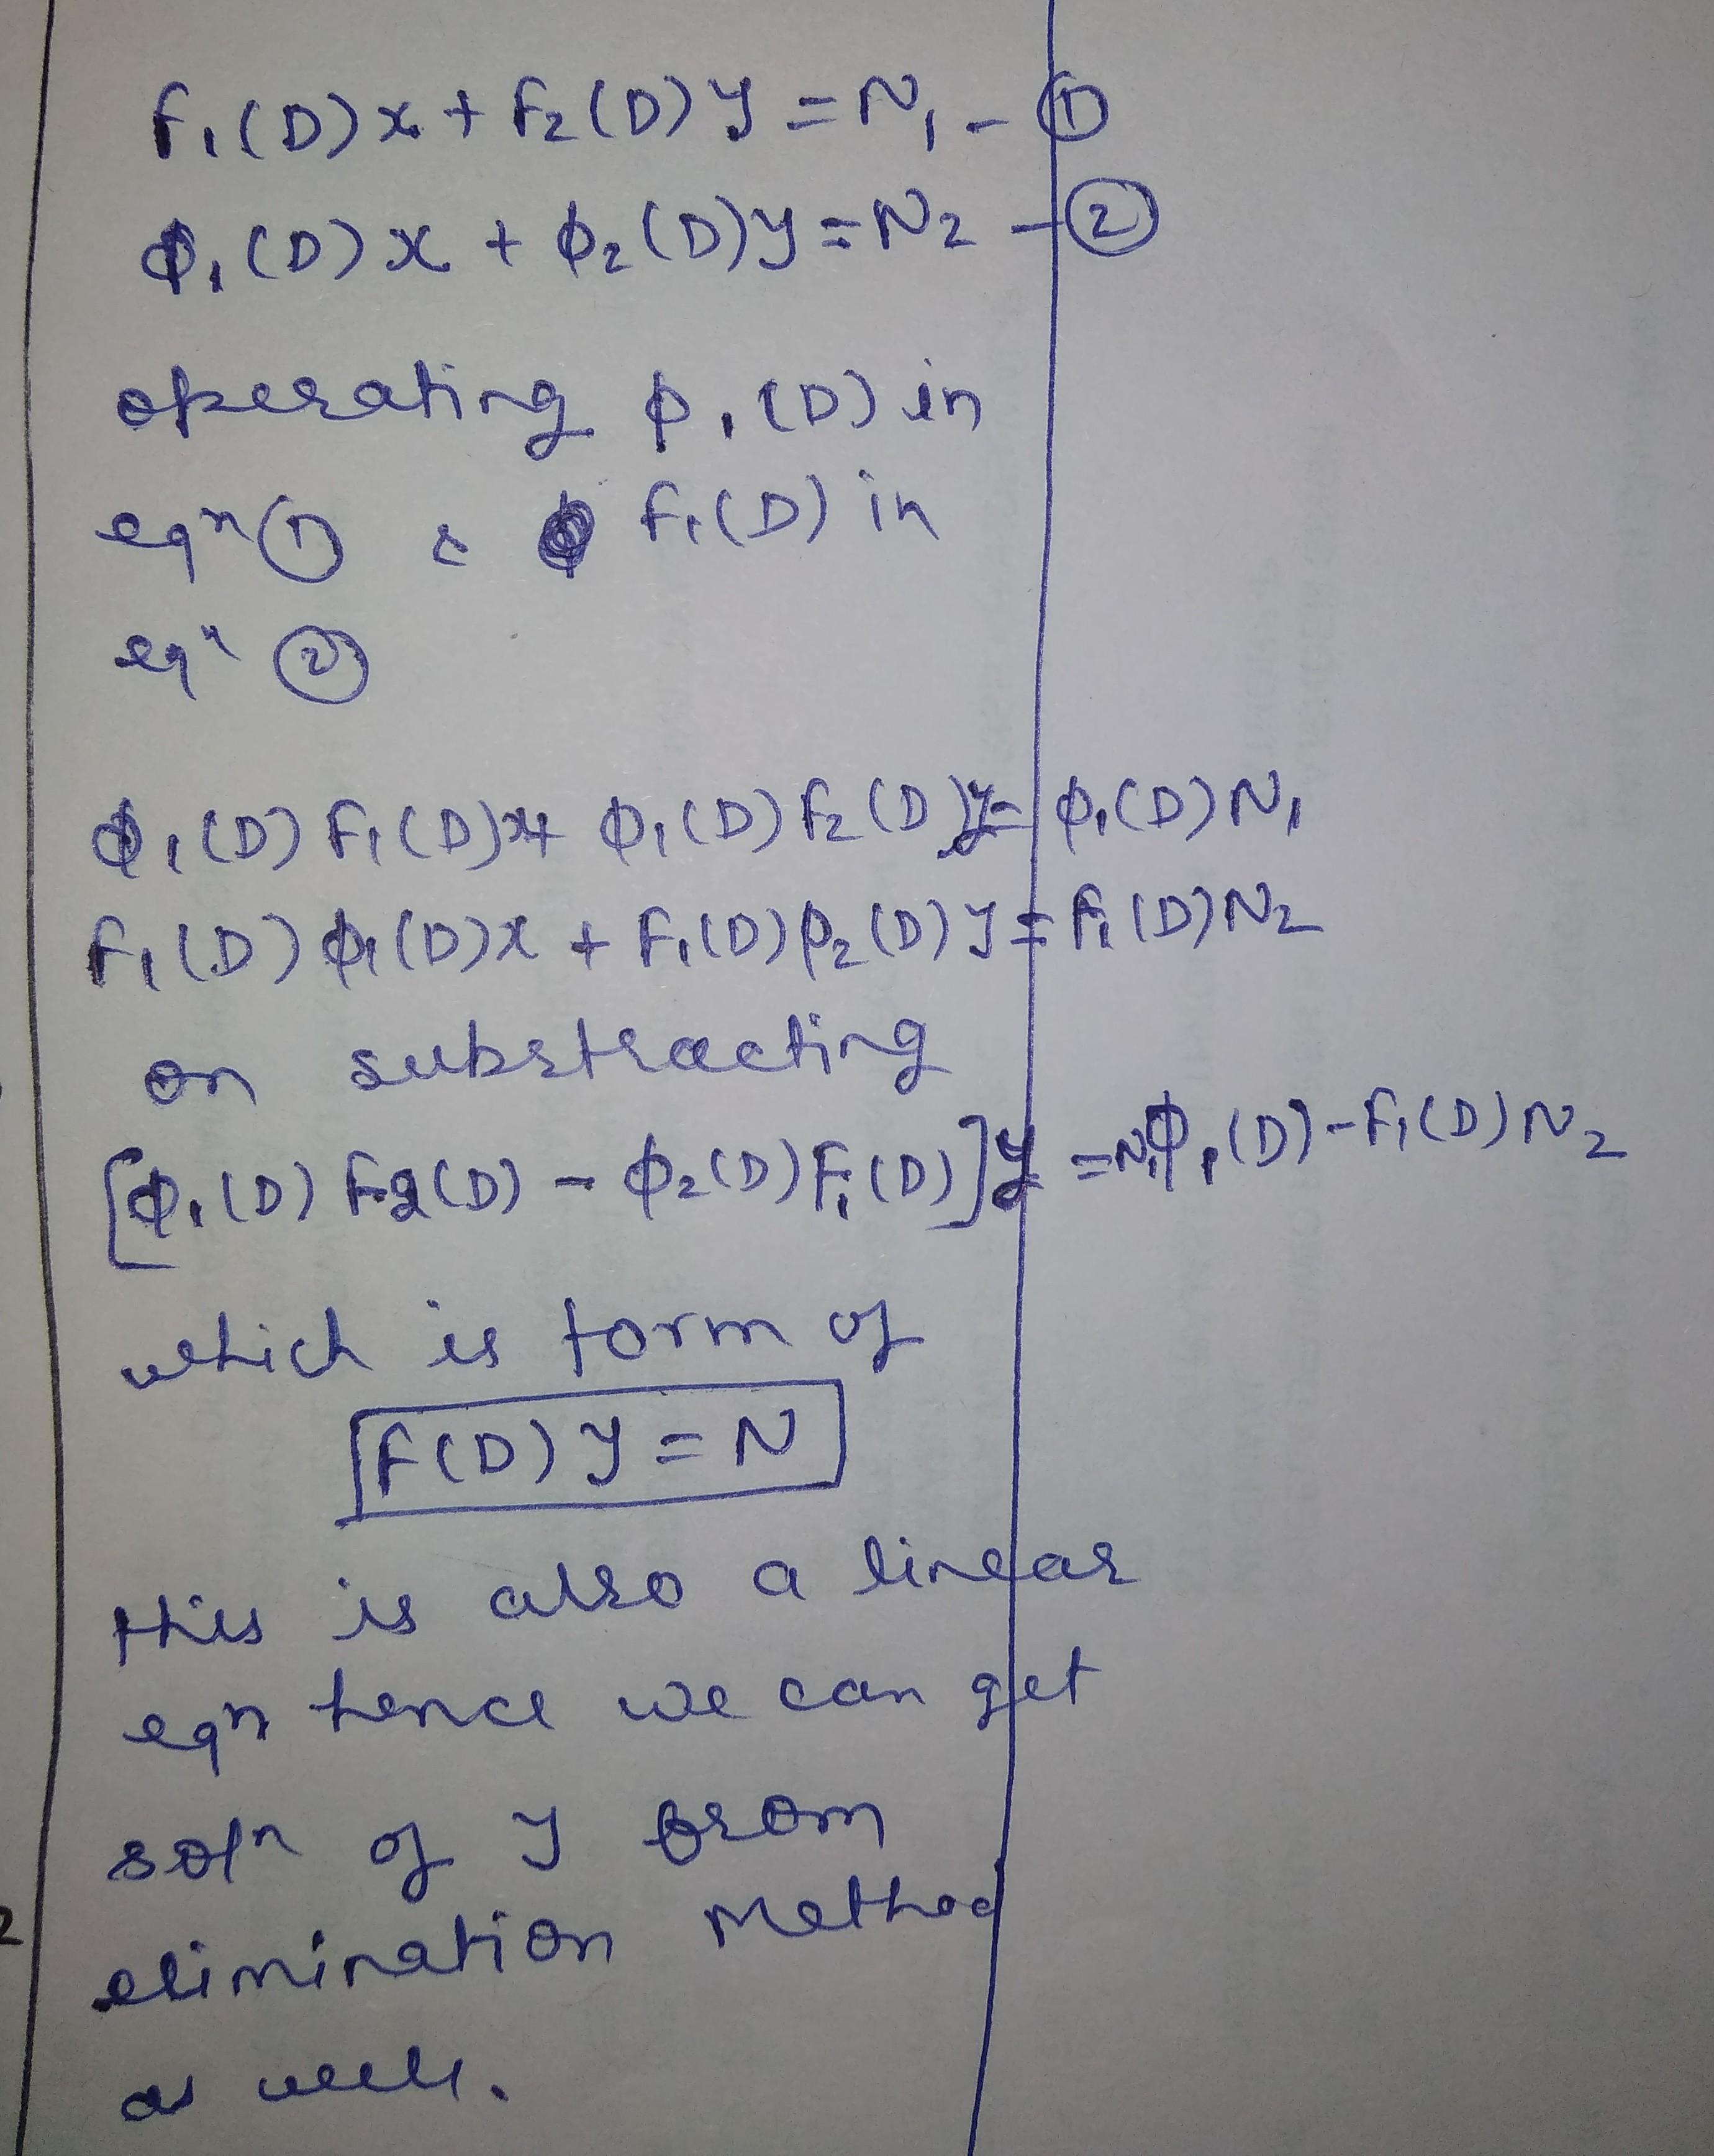 f₁(D)x + f₂(D)y = N₁ - ①
ϕ₁(D)x + ϕ₂(D)y = N₂ - ②
operating ϕ₁(D) in
eqⁿ ① & f₁(D) in
eqⁿ ②
ϕ₁(D) f₁(D)x + ϕ₁(D) f₂(D)y = ϕ₁(D) N₁
f₁(D) ϕ₁(D)x + f₁(D) ϕ₂(D)y = f₁(D) N₂
on substracting
[ϕ₁(D) f₂(D) - ϕ₂(D) f₁(D)]y = N₁ϕ₁(D) - f₁(D) N₂
which is form of
f(D) y = N
this is also a linear
eqn hence we can get
solⁿ of y from
elimination Method
as well.
2